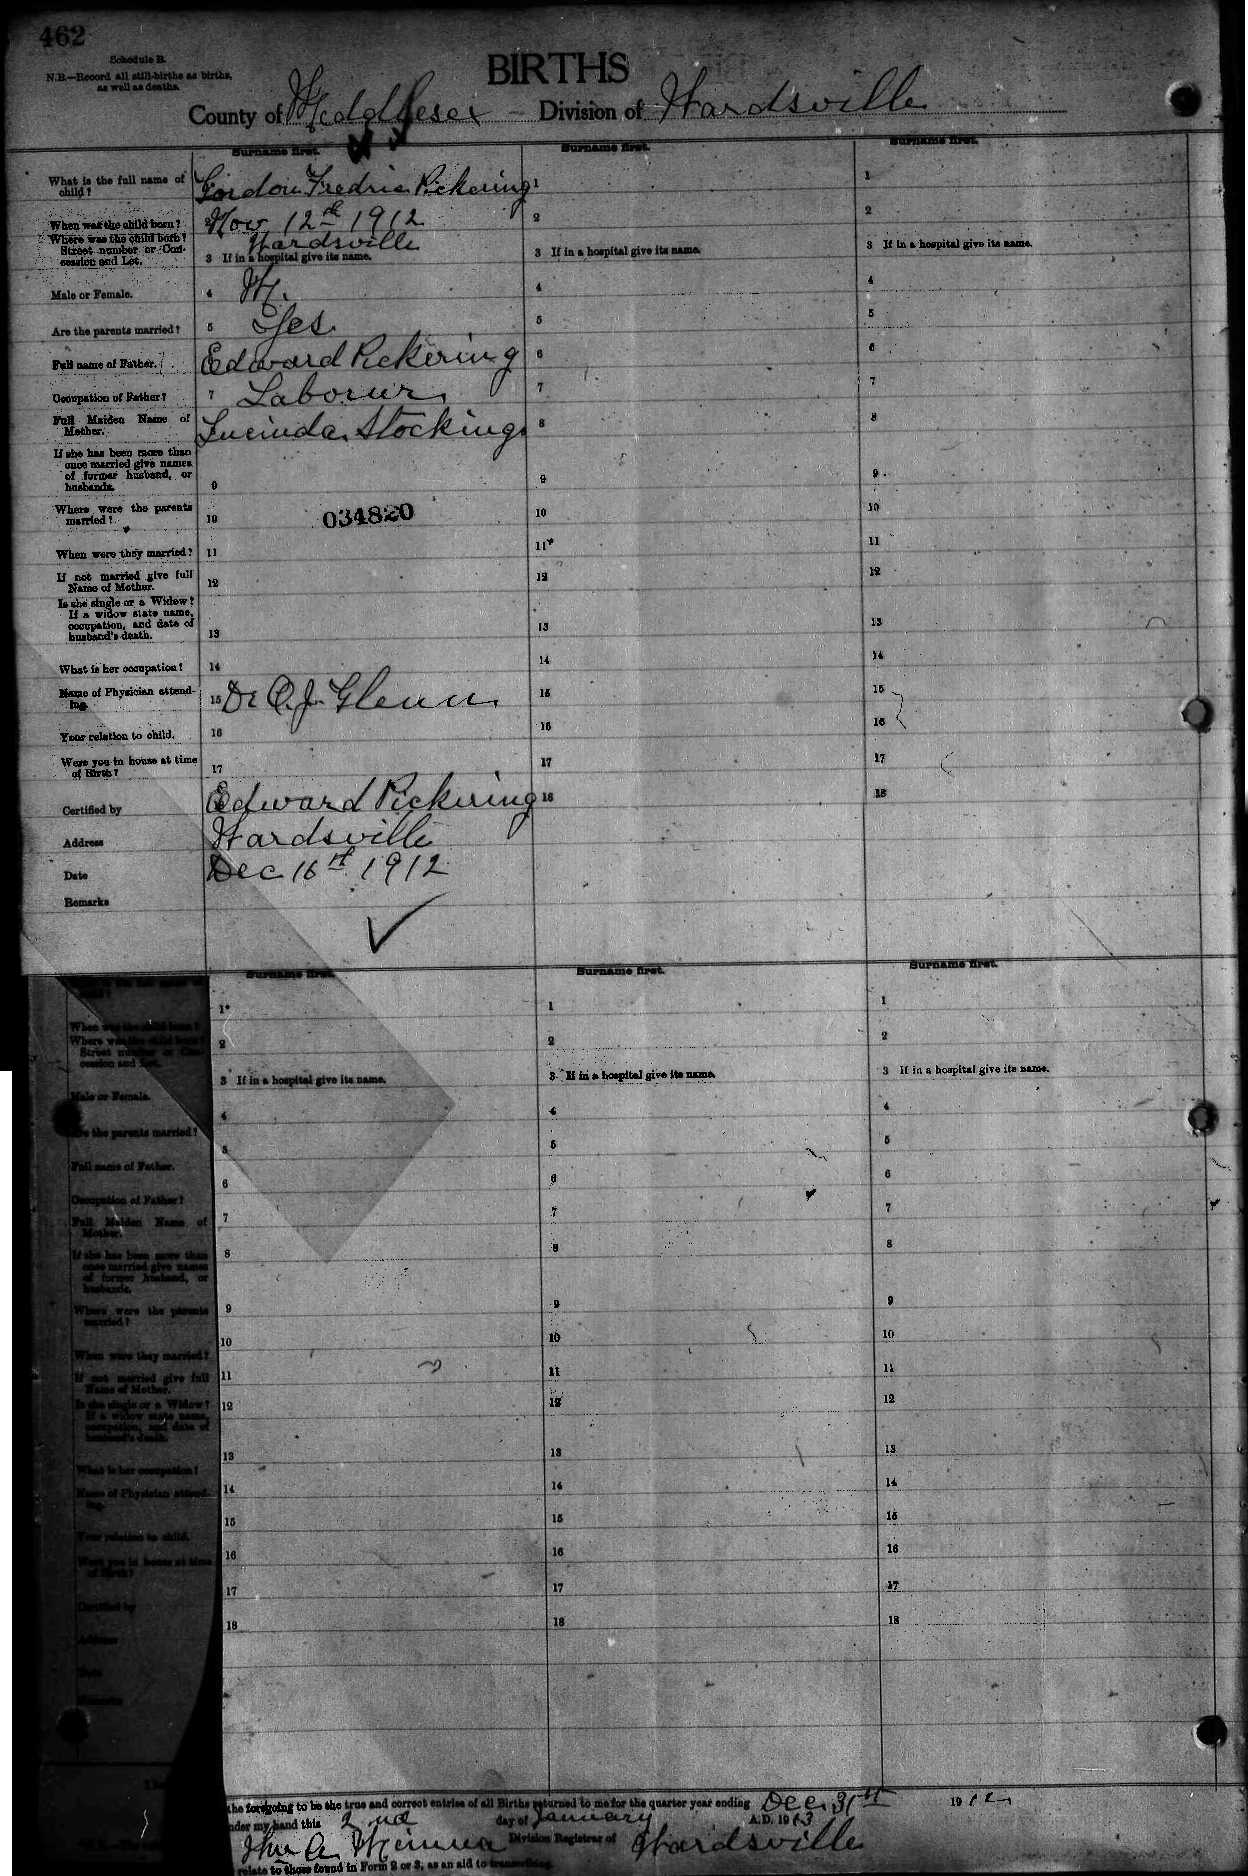 462
Schedule B.
N.B.—Record all still-births as births,
as well as deaths.
BIRTHS
County of Middlesex — Division of Wardsville
Surname first. Surname first. Surname first.
What is the full name of child? Gordon Fredric Pickering 1 1
When was the child born? 2 Nov 12th 1912 2 2
Where was the child born? Street number or Concession and Lot. Wardsville
3 If in a hospital give its name. 3 If in a hospital give its name. 3 If in a hospital give its name.
Male or Female. 4 M. 4 4
Are the parents married? 5 Yes 5 5
Full name of Father. Edward Pickering 6 6
Occupation of Father? 7 Laborur 7 7
Full Maiden Name of Mother. Lucinda Stockings 8 8
If she has been more than once married give names of former husband, or husbands. 9 9 9
Where were the parents married? 10 034820 10 10
When were they married? 11 11 11
If not married give full Name of Mother. 12 12 12
Is she single or a Widow? If a widow state name, occupation, and date of husband's death. 13 13 13
What is her occupation? 14 14 14
Name of Physician attending. 15 Dr O.J. Glenn 15 15
Your relation to child. 16 16 16
Were you in house at time of Birth? 17 17 17
Certified by Edward Pickering 18 18
Address Wardsville
Date Dec 16th 1912
Remarks
Surname first. Surname first. Surname first.
1 1 1
When was the child born? 2 2 2
Where was the child born? Street number or Concession and Lot.
3 If in a hospital give its name. 3 If in a hospital give its name. 3 If in a hospital give its name.
Male or Female. 4 4 4
Are the parents married? 5 5 5
Full name of Father. 6 6 6
Occupation of Father? 7 7 7
Full Maiden Name of Mother. 8 8 8
If she has been more than once married give names of former husband, or husbands. 9 9 9
Where were the parents married? 10 10 10
When were they married? 11 11 11
If not married give full Name of Mother. 12 12 12
Is she single or a Widow? If a widow state name, occupation, and date of husband's death. 13 13 13
What is her occupation? 14 14 14
Name of Physician attending. 15 15 15
Your relation to child. 16 16 16
Were you in house at time of Birth? 17 17 17
Certified by 18 18 18
Address
Date
Remarks
the foregoing to be the true and correct entries of all Births returned to me for the quarter year ending Dec 31st 1912
nder my hand this 2nd day of January A.D. 1913
Division Registrar of Wardsville
relate to those found in Form 2 or 3, as an aid to transcribing.